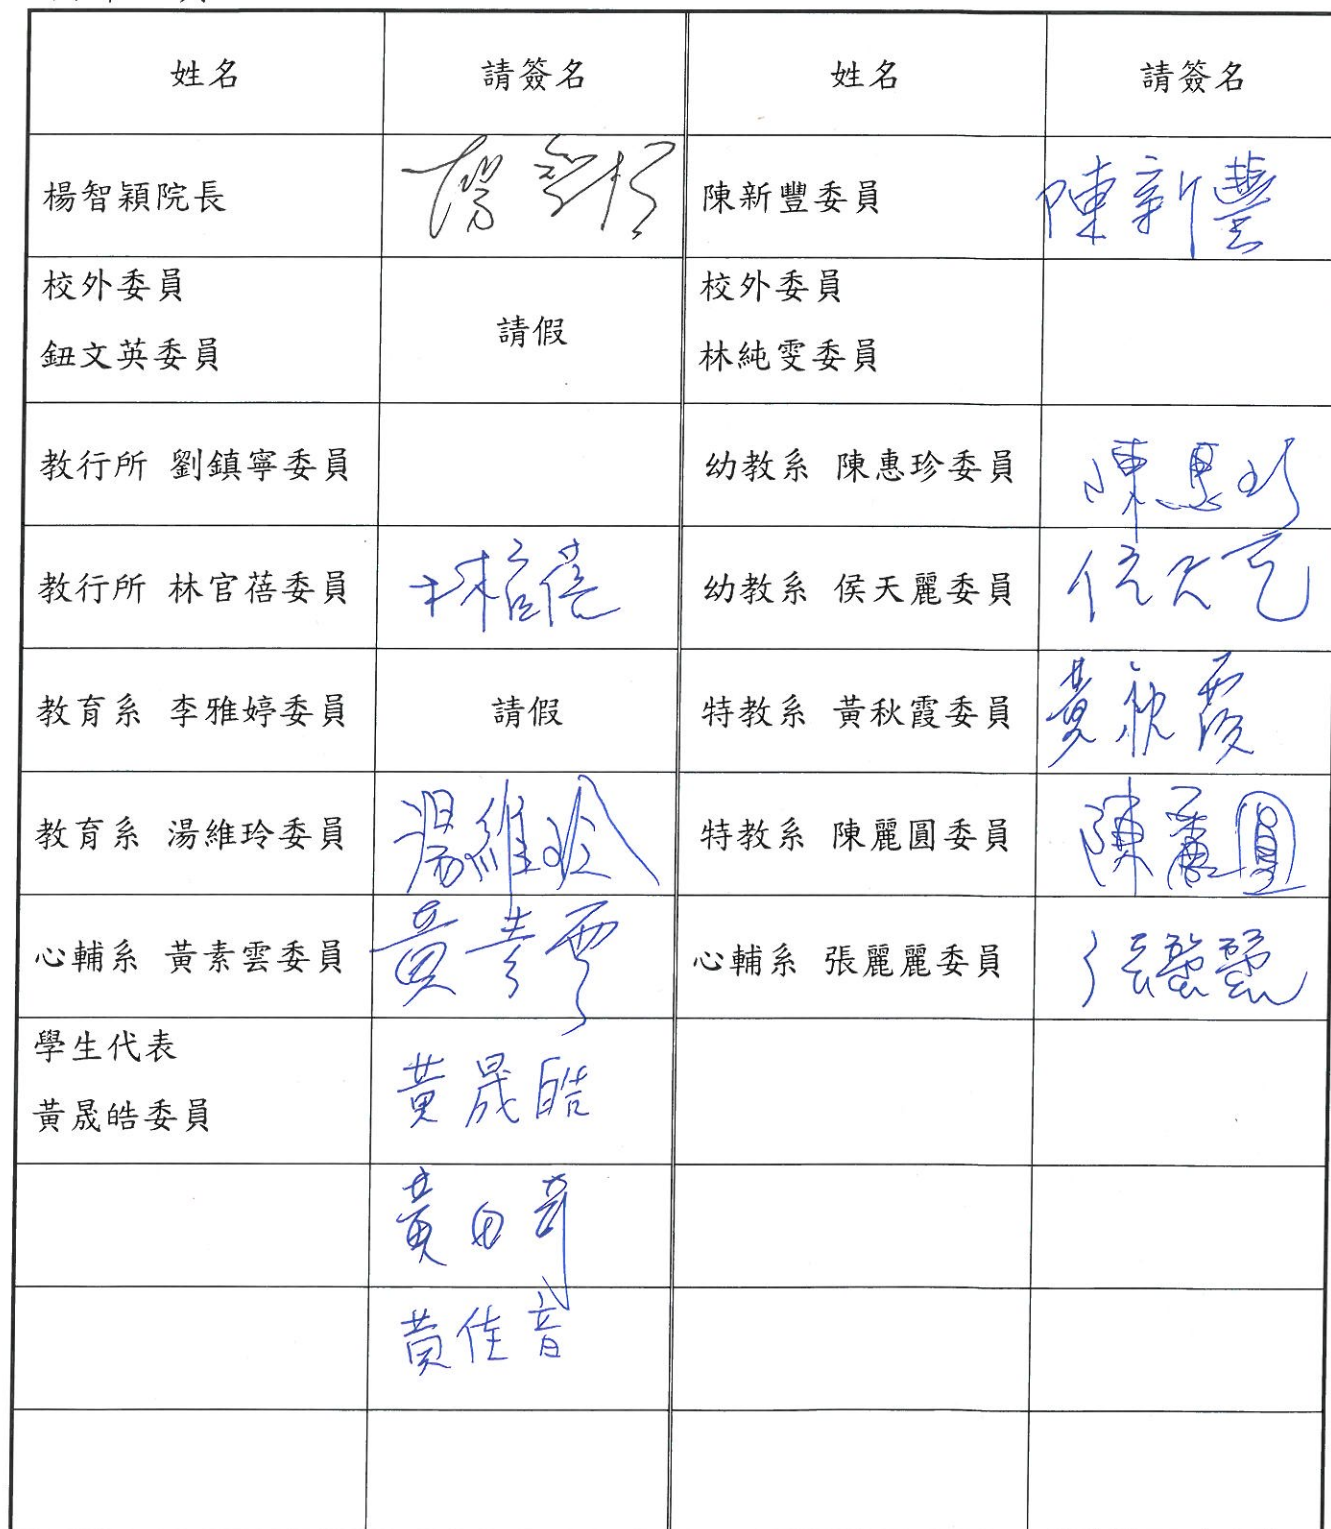 姓名 請簽名 姓名 請簽名
楊智穎院長 楊智穎 陳新豐委員 陳新豐
校外委員 校外委員
鈕文英委員 請假 林純雯委員
教行所 劉鎮寧委員 幼教系 陳惠珍委員 陳惠珍
教行所 林官蓓委員 林官蓓 幼教系 侯天麗委員 侯天麗
教育系 李雅婷委員 請假 特教系 黃秋霞委員 黃秋霞
教育系 湯維玲委員 湯維玲 特教系 陳麗圓委員 陳麗圓
心輔系 黃素雲委員 黃素雲 心輔系 張麗麗委員 張麗麗
學生代表
黃晟皓委員 黃晟皓
黃
黃佳音